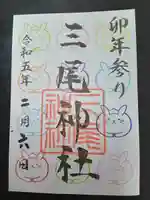 卯年参り
三尾神社
令和五年 二月六日